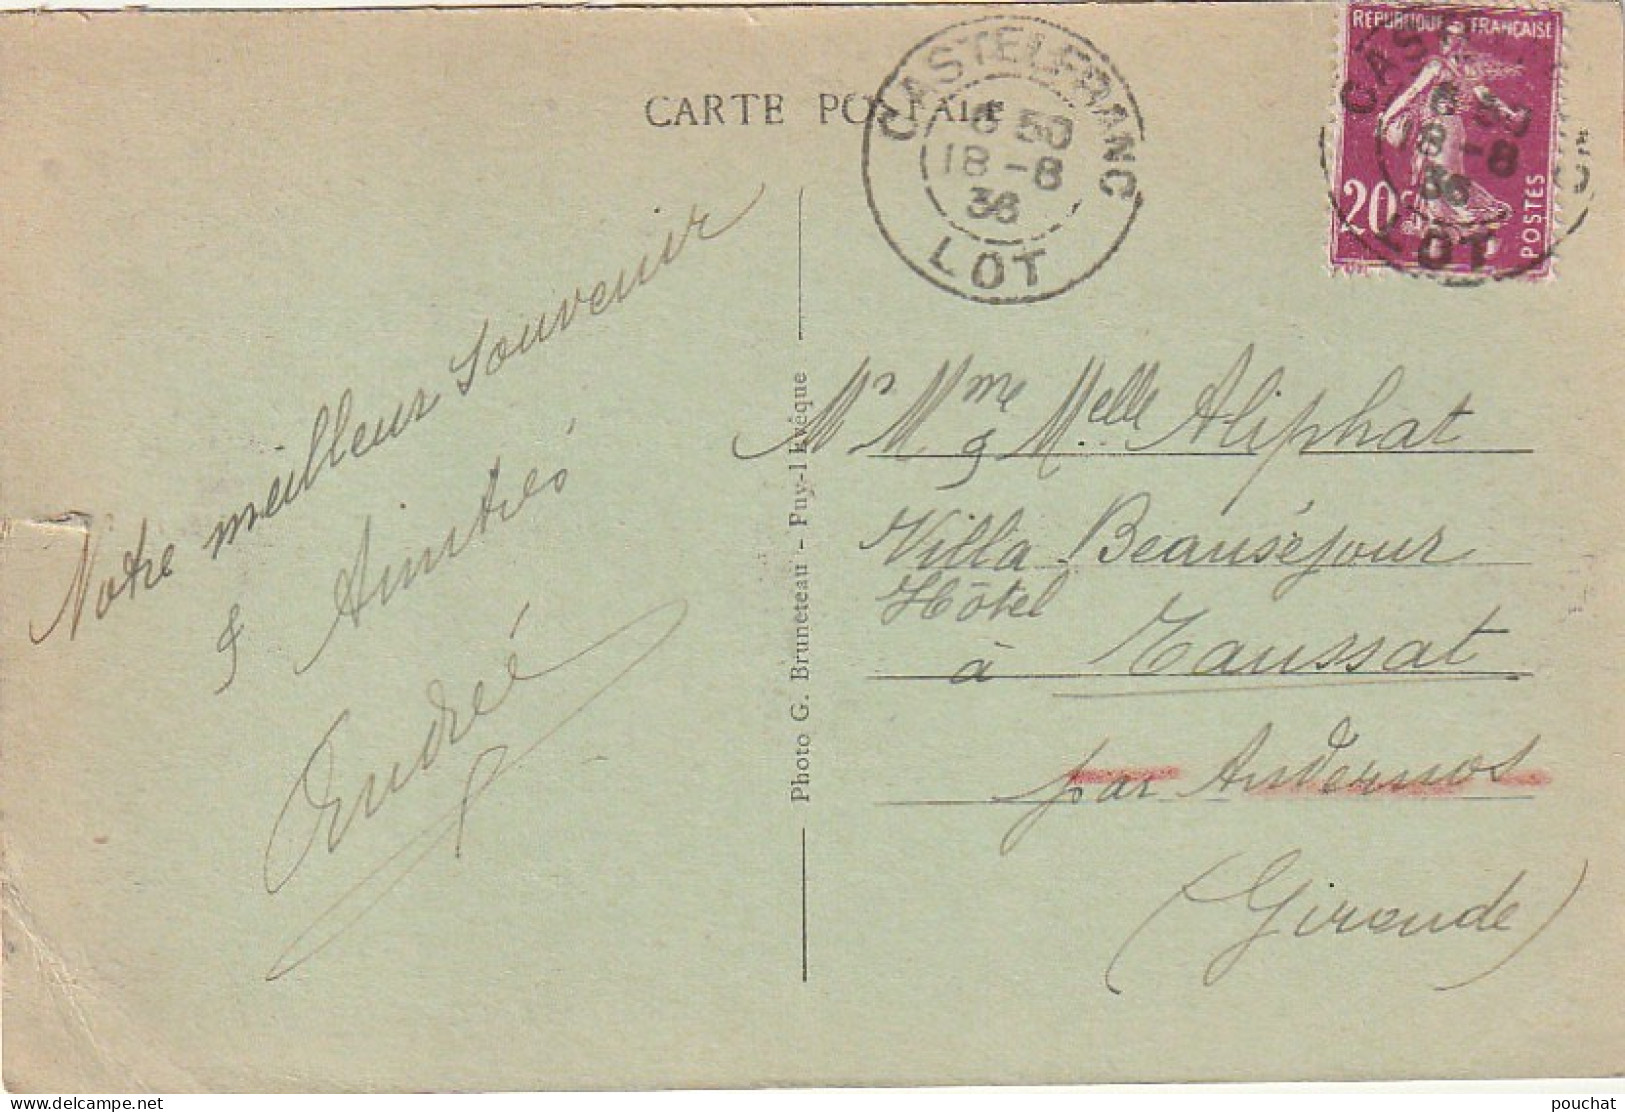 CARTE POSTALE
CASTELFRANC
6 50
18 - 8
36
LOT
RÉPUBLIQUE FRANÇAISE
20 c
POSTES
Notre meilleur souvenir
& Amitiés
André
Photo G. Bruneteau - Puy-l'Evêque
Mr Mme & Melle Aliphat
Villa Beauséjour
Hôtel
à Taussat
par Andernos
(Gironde)
delcampe.net
pouchat